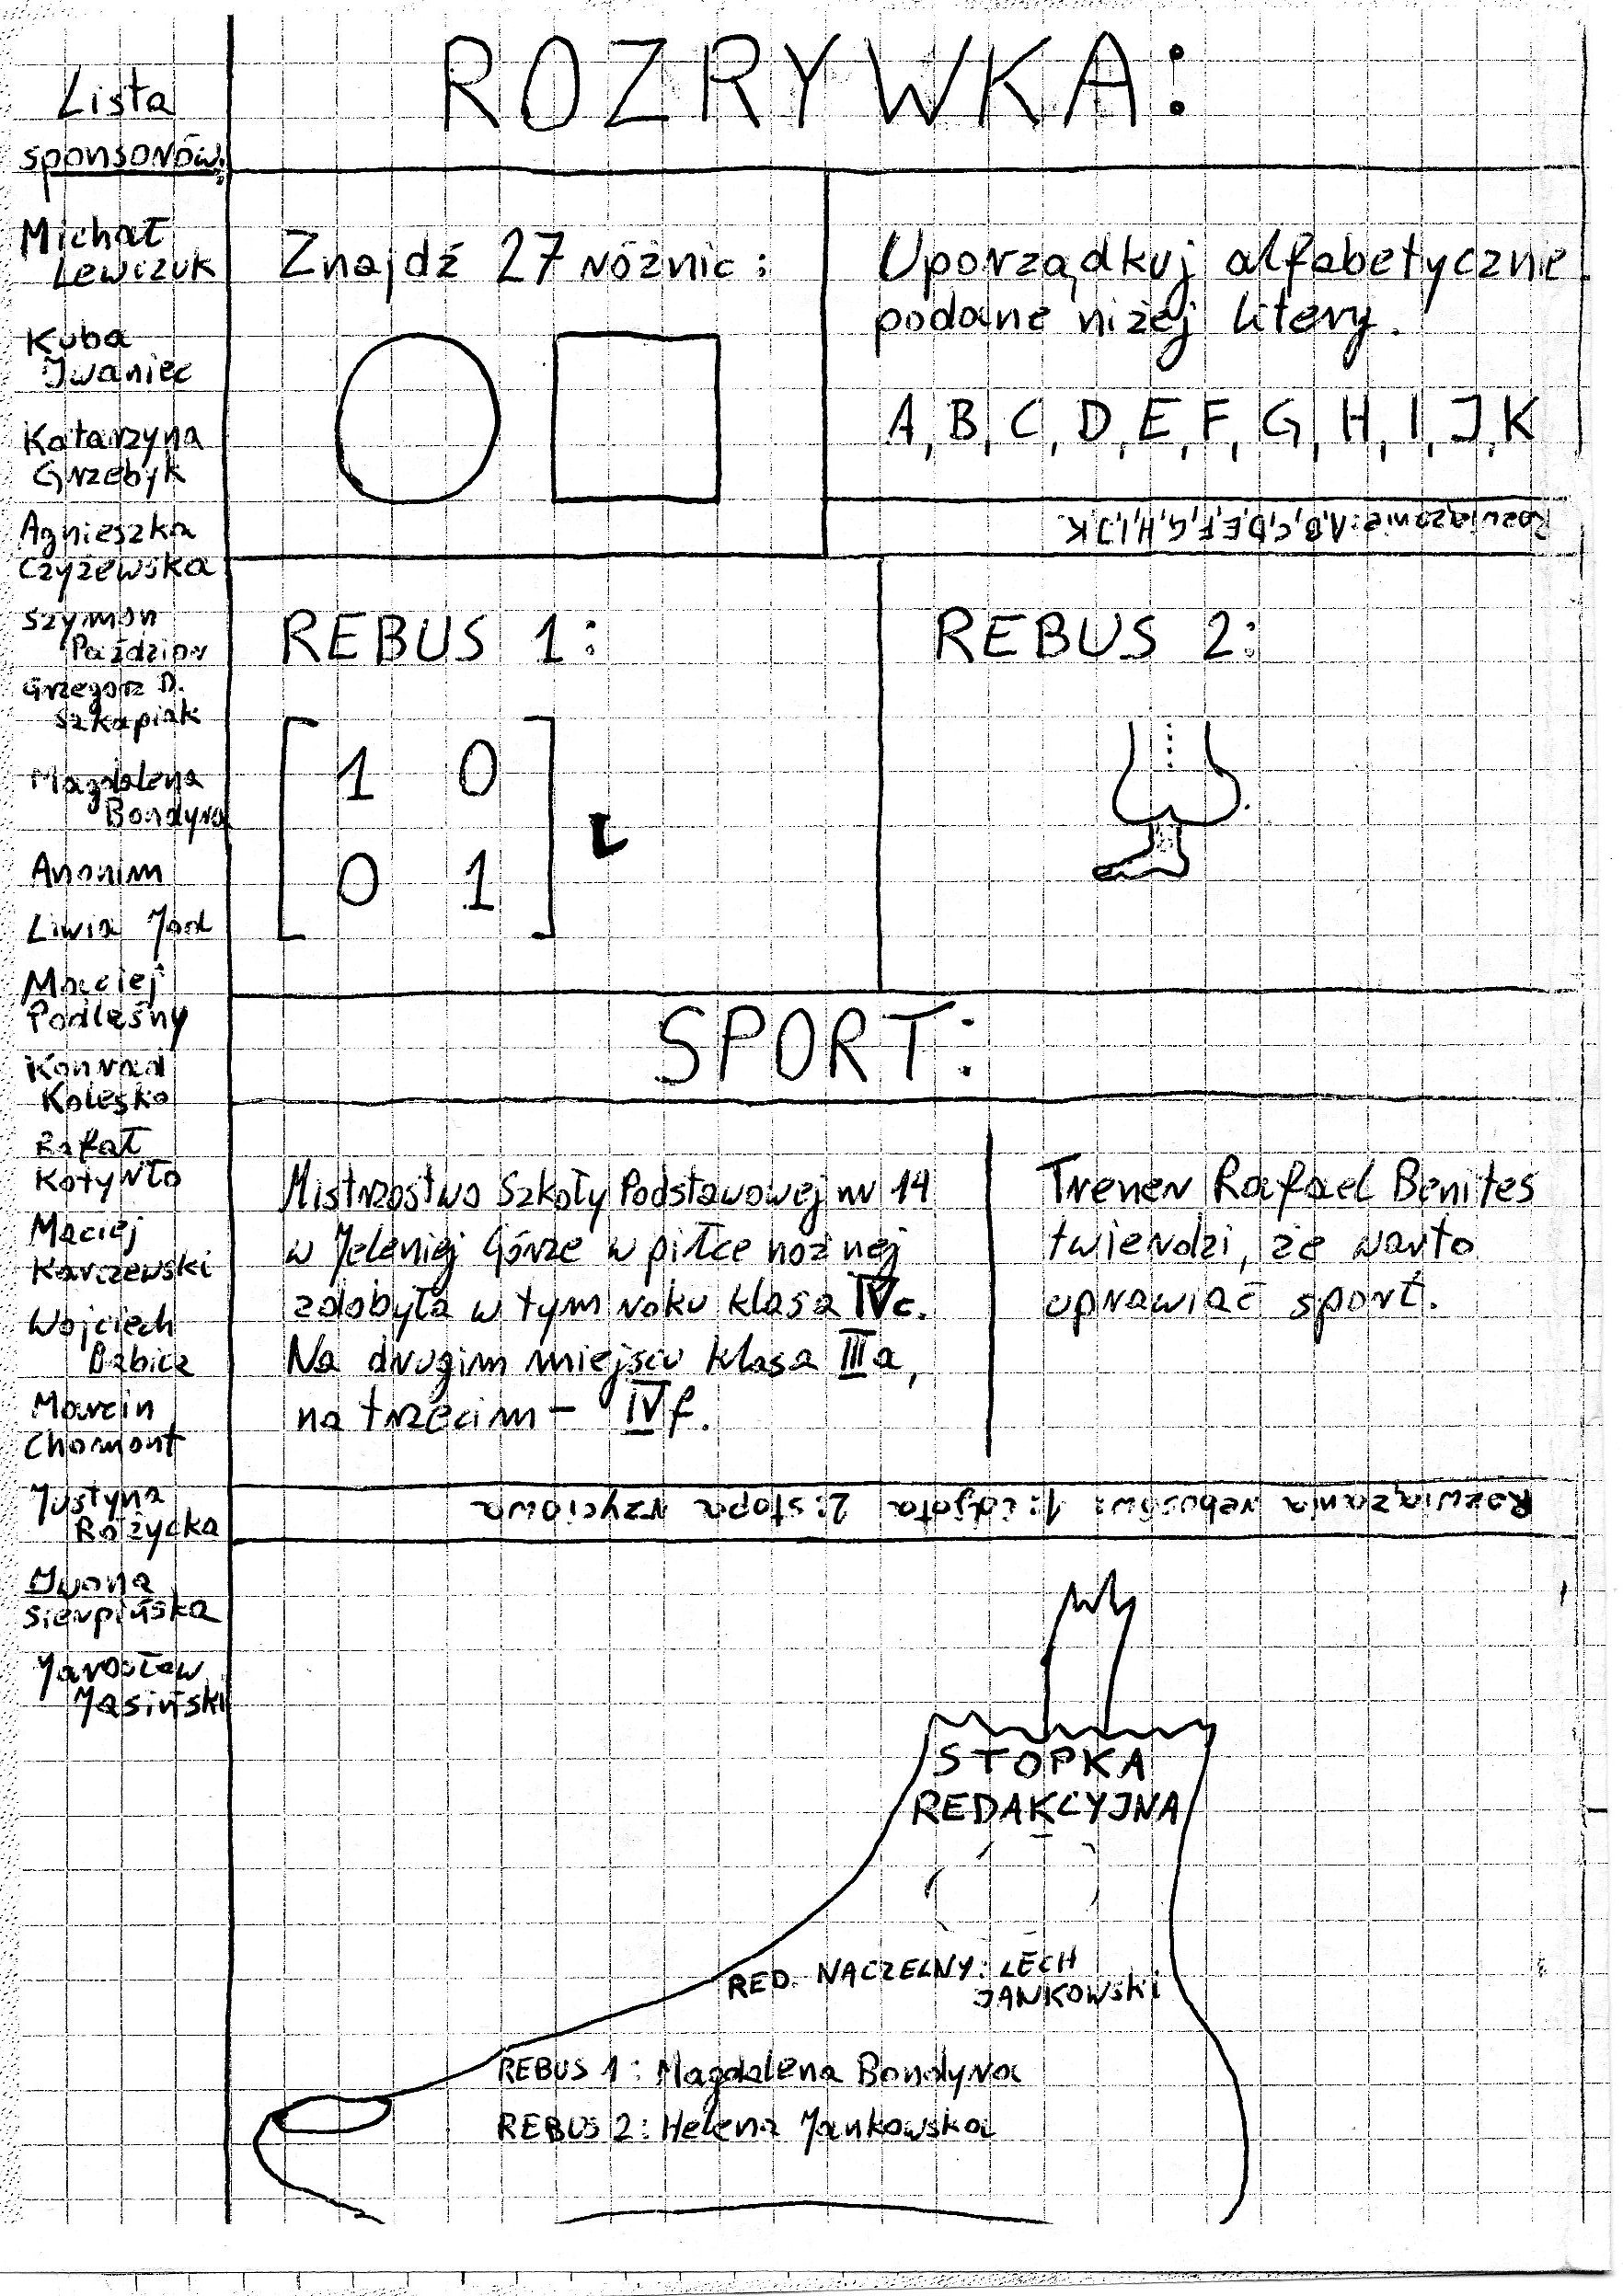 Lista
sponsorów:
Michał
Lewczuk
Kuba
Iwaniec
Katarzyna
Grzebyk
Agnieszka
Czyżewska
Szymon
Paździor
Grzegorz D.
Szkapiak
Magdalena
Bondyra
Anonim
Liwia Jad
Maciej
Podleśny
Konrad
Kolesko
Rafał
Kotyrło
Maciej
Karczewski
Wojciech
Babicz
Marcin
Chomont
Justyna
Różycka
Iwona
Sierpińska
Jarosław
Jasiński
ROZRYWKA:
Znajdź 27 różnic:
Uporządkuj alfabetycznie
podane niżej litery.
A, B, C, D, E, F, G, H, I, J, K
Rozwiązanie: A,B,C,D,E,F,G,H,I,J,K.
REBUS 1:
1 0
0 1
L
REBUS 2:
SPORT:
Mistrzostwo Szkoły Podstawowej nr 14
w Jeleniej Górze w piłce nożnej
zdobyła w tym roku klasa IVc.
Na drugim miejscu klasa IIIa,
na trzecim – IVf.
Trener Rafael Benites
twierdzi, że warto
uprawiać sport.
Rozwiązania rebusów: 1: idyota 2: stopa życiowa
STOPKA
REDAKCYJNA
RED. NACZELNY: LECH
JANKOWSKI
REBUS 1: Magdalena Bondyra
REBUS 2: Helena Jankowska